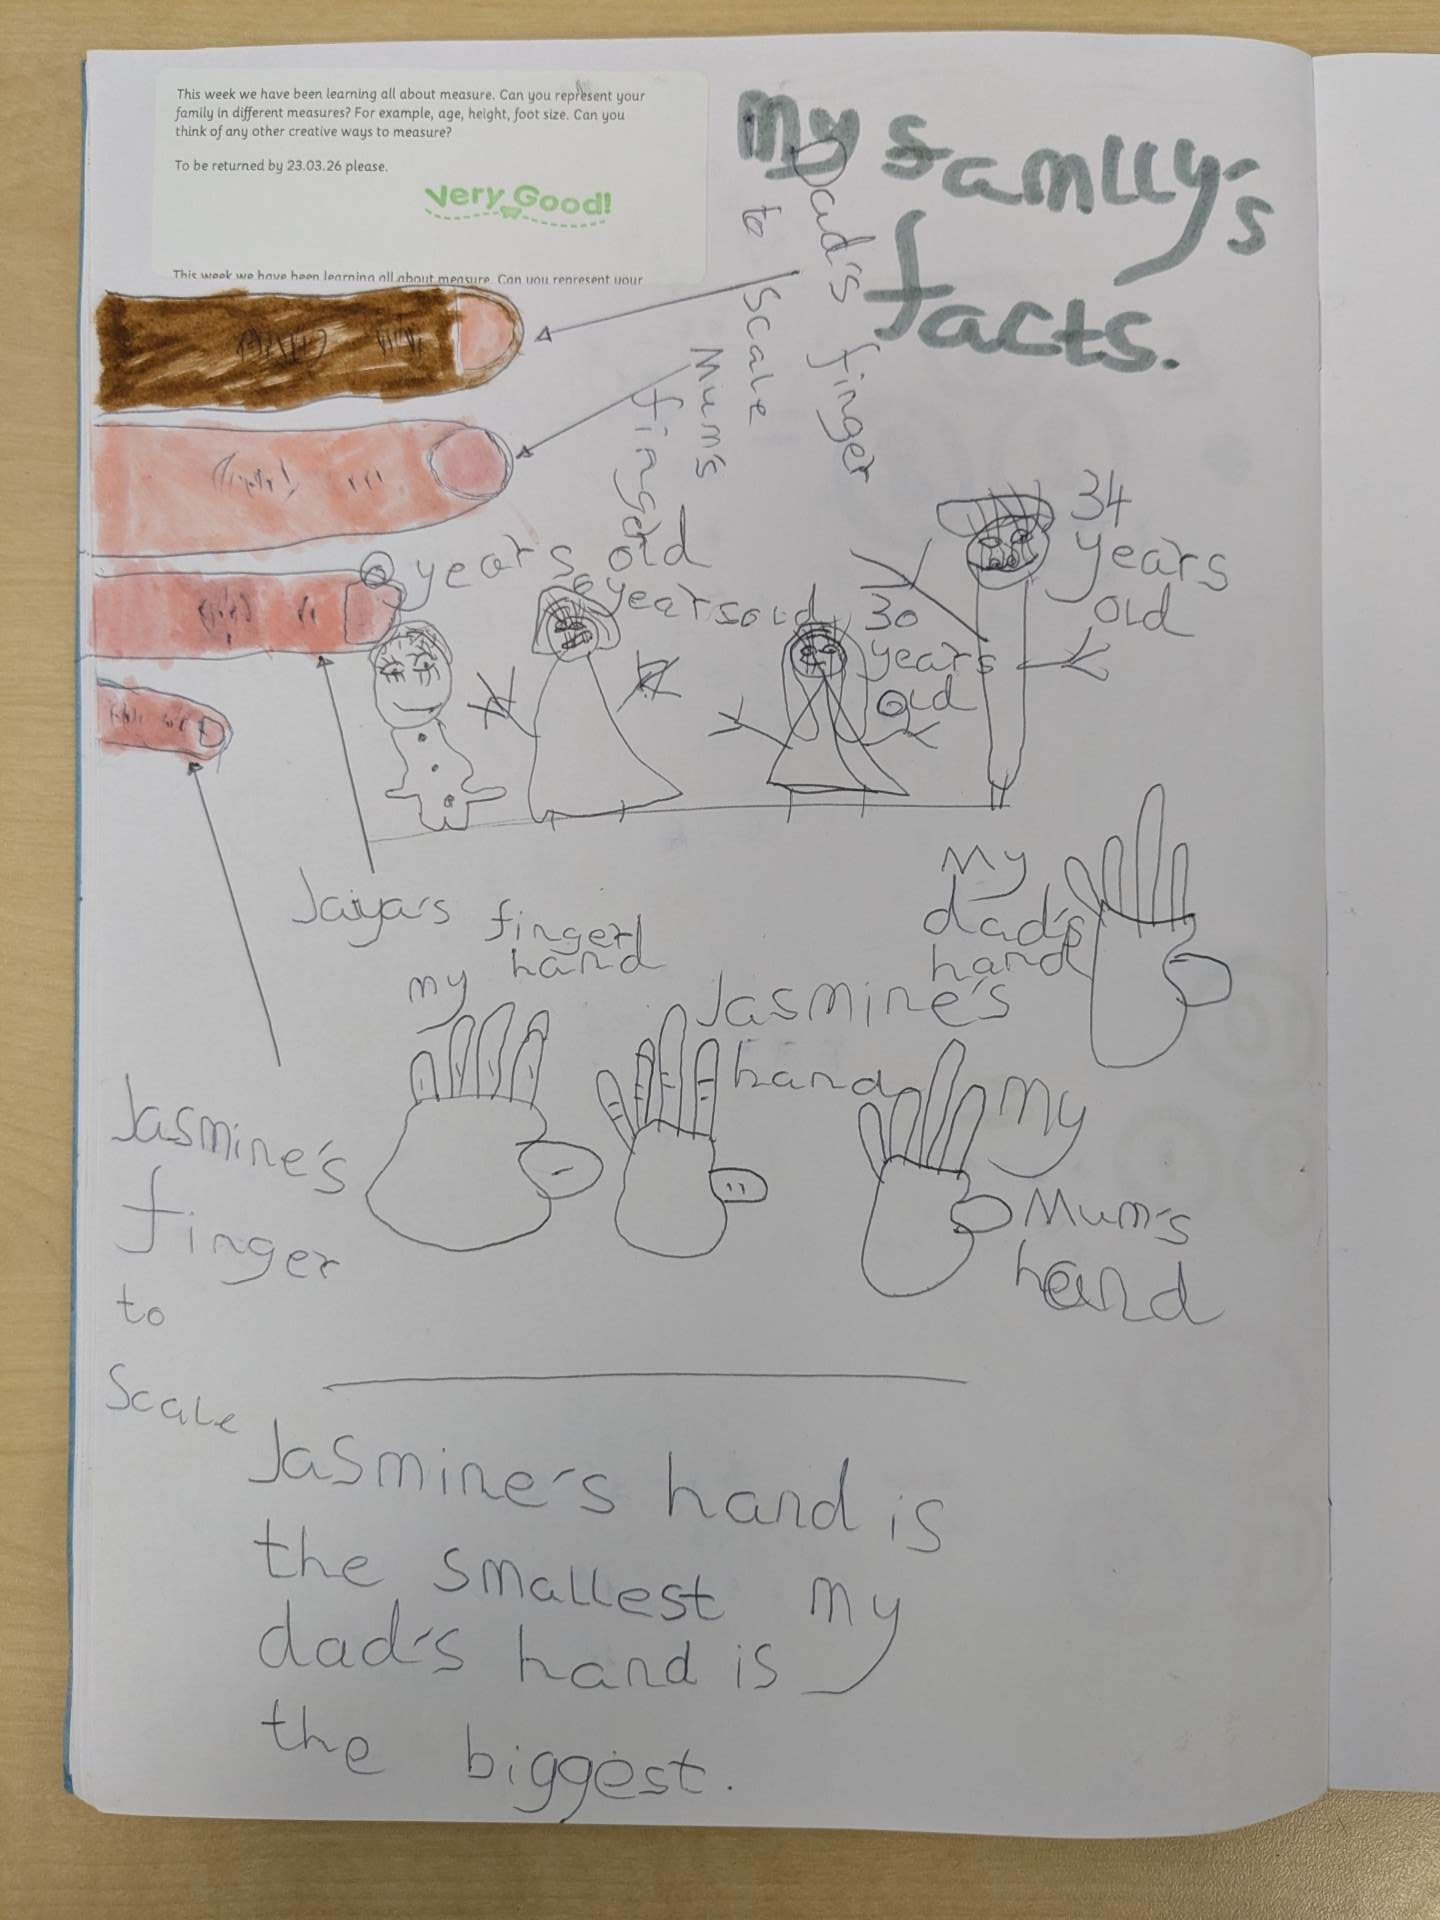 This week we have been learning all about measure. Can you represent your
family in different measures? For example, age, height, foot size. Can you
think of any other creative ways to measure?
To be returned by 23.03.26 please.
Very Good!
This week we have been learning all about measure. Can you represent your
my family's
facts.
Dad's finger
to scale
Mum's
finger
0 years old
6 years old
30
years
old
34
years
old
Jaiya's finger
my hand
Jasmine's
hand
My
dad's
hand
My
Mum's
hand
Jasmine's
finger
to
scale
Jasmine's hand is
the smallest my
dad's hand is
the biggest.